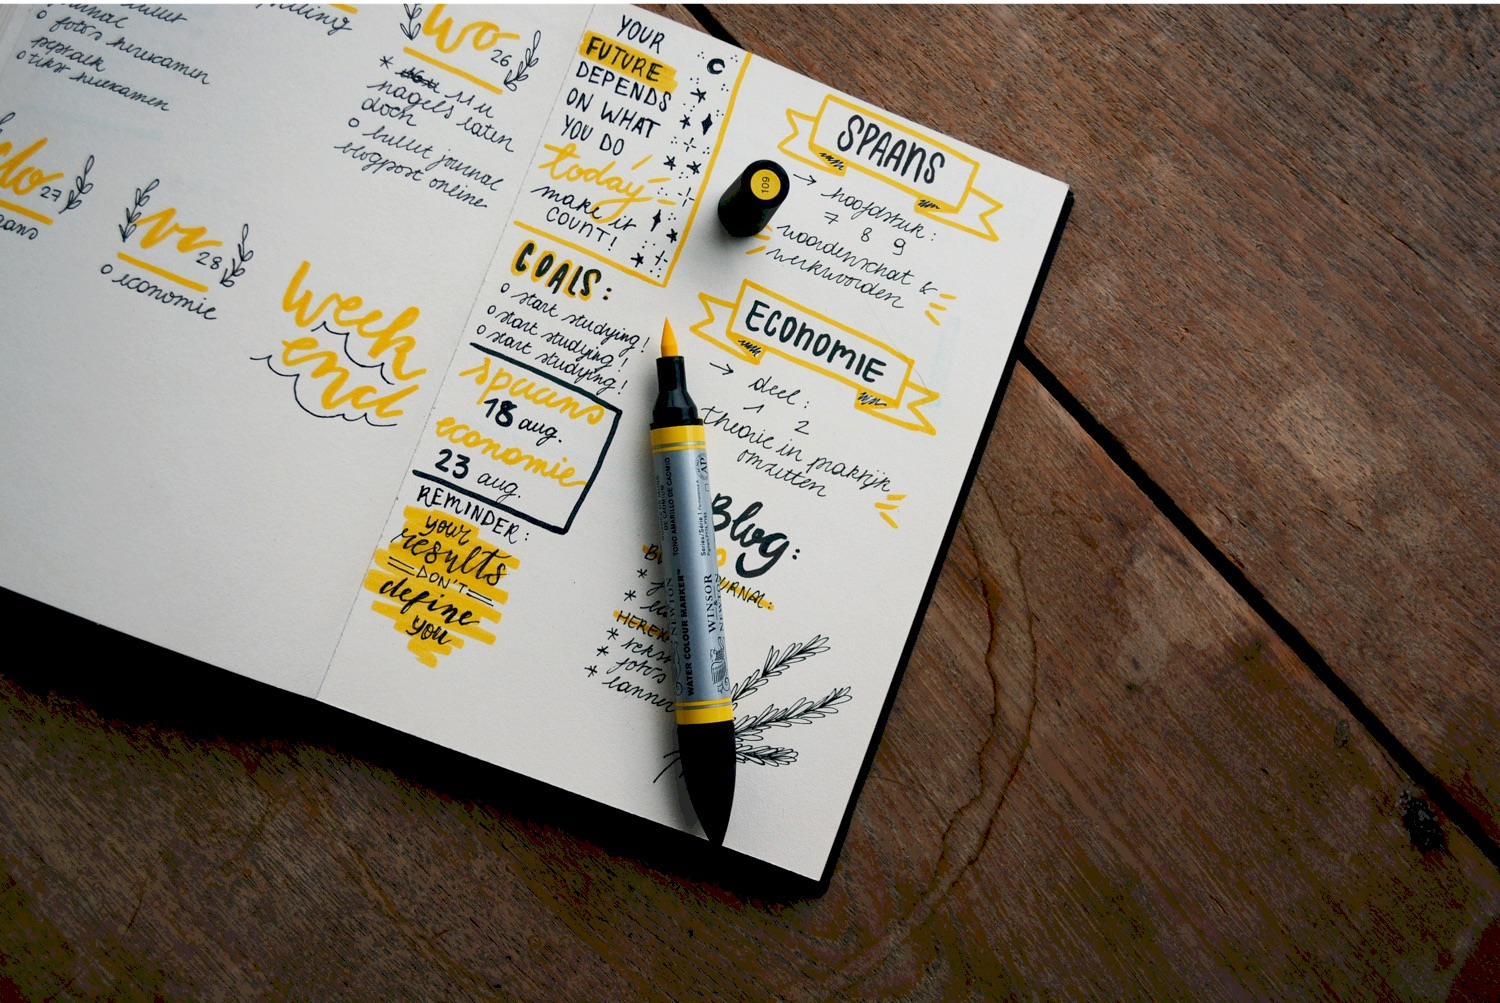 o foto's herexamen
o tekst herexamen
wo 26
* 11 u
nagels laten
doen
o bullet journal
blogpost online
do 27
vr 28
o economie
week
end
YOUR
FUTURE
DEPENDS
ON WHAT
YOU DO
today
make it
COUNT!
GOALS:
o start studying!
o start studying!
o start studying!
spaans
18 aug.
economie
23 aug.
REMINDER:
your
results
DON'T
define
you
SPAANS
→ hoofdstuk:
7 8 9
woordenschat &
werkwoorden
ECONOMIE
→ deel:
1 2
theorie in praktijk
omzetten
Blog:
JOURNAL:
HEREX
* tekst
* foto's
109
TONO AMARILLO DE CADMIO
WATER COLOUR MARKER™
WINSOR
NEWTON
AP